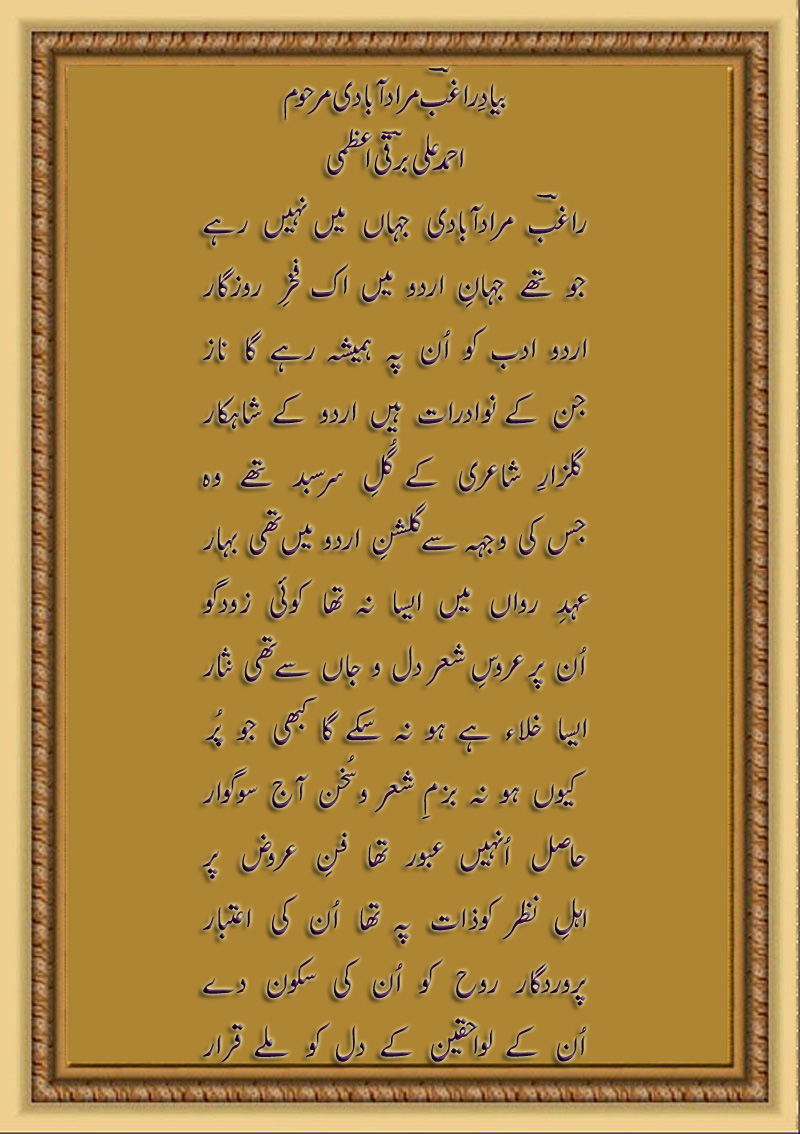 بیادِ راغبؔ مرادآبادی مرحوم
احمد علی برقیؔ اعظمی
راغبؔ مرادآبادی جہاں میں نہیں رہے
جو تھے جہانِ اردو میں اک فخرِ روزگار
اردو ادب کو اُن پہ ہمیشہ رہے گا ناز
جن کے نوادرات ہیں اردو کے شاہکار
گلزارِ شاعری کے گُلِ سرسبد تھے وہ
جس کی وجہہ سے گلشنِ اردو میں تھی بہار
عہدِ رواں میں ایسا نہ تھا کوئی زودگو
اُن پر عروسِ شعر دل و جاں سے تھی نثار
ایسا خلاء ہے ہو نہ سکے گا کبھی جو پُر
کیوں ہو نہ بزمِ شعر وسُخن آج سوگوار
حاصل اُنہیں عبور تھا فنِ عروض پر
اہلِ نظر کو ذات پہ تھا اُن کی اعتبار
پروردگار روح کو اُن کی سکون دے
اُن کے لواحقین کے دل کو ملے قرار